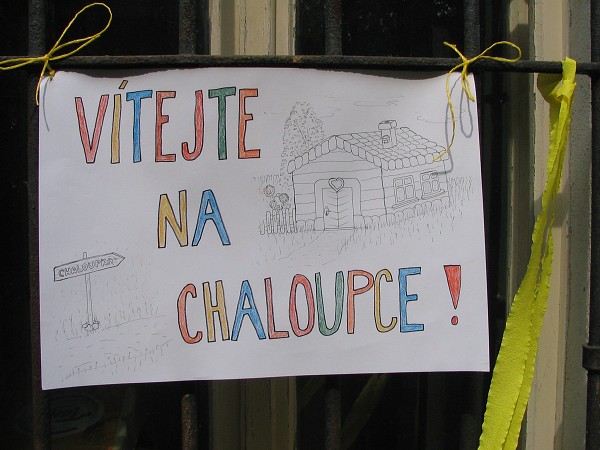 VÍTEJTE
NA
CHALOUPCE!
CHALOUPKA